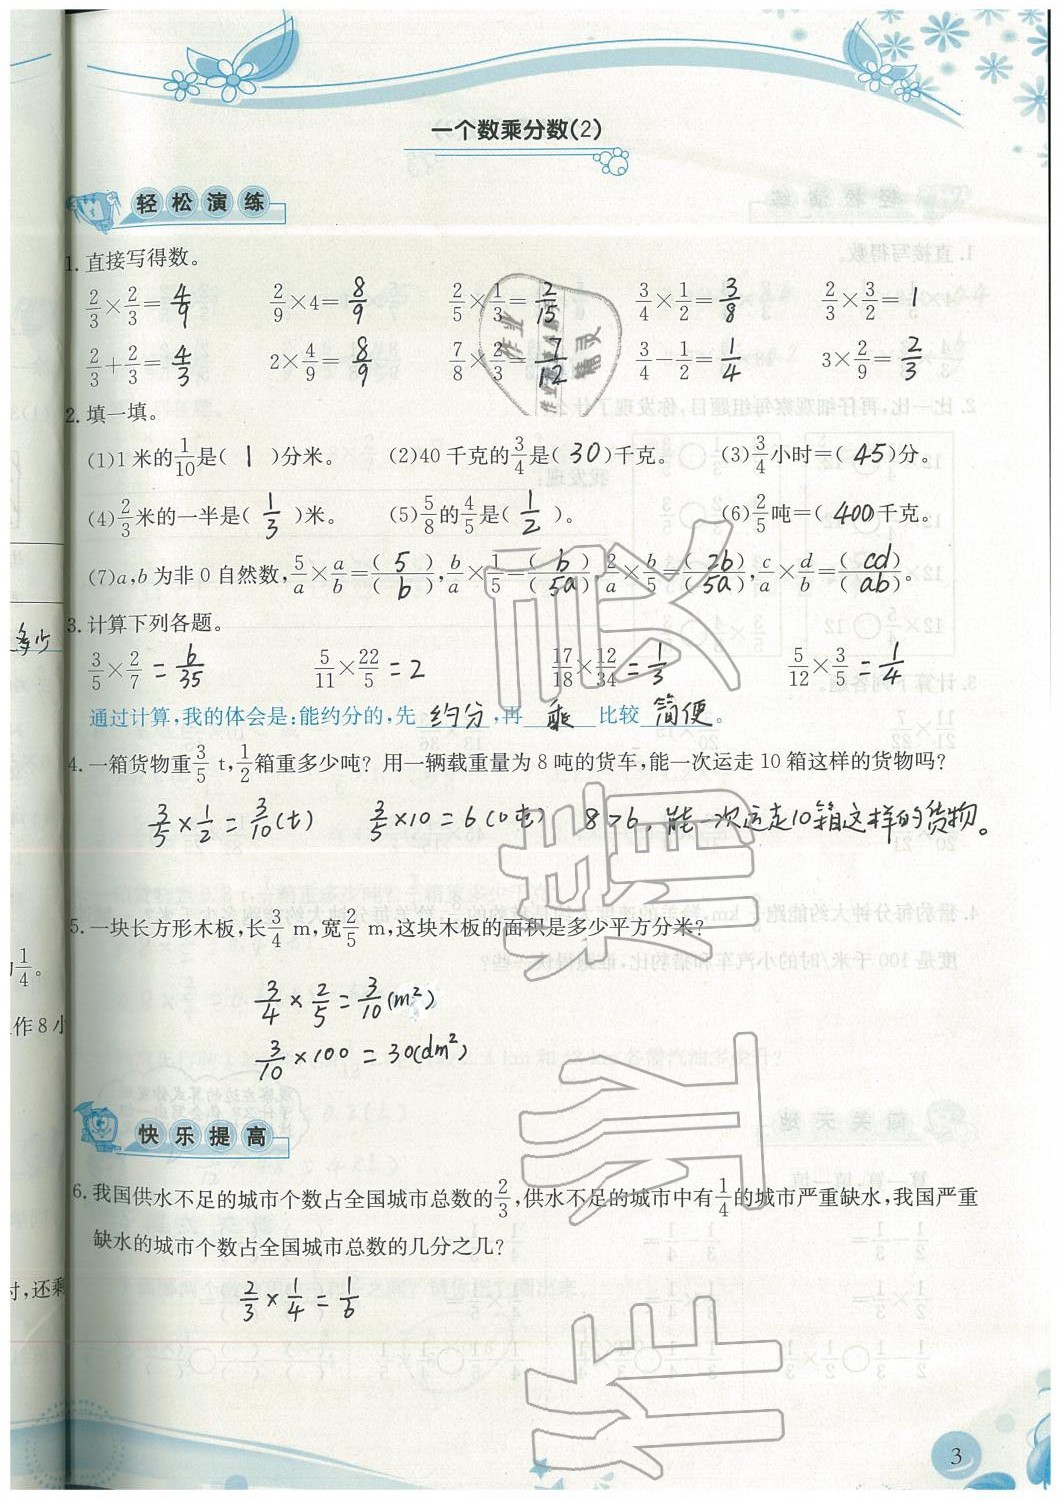 一个数乘分数(2)
轻松演练
1.直接写得数。
2/3×2/3=4/9 2/9×4=8/9 2/5×1/3=2/15 3/4×1/2=3/8 2/3×3/2=1
2/3+2/3=4/3 2×4/9=8/9 7/8×2/3=7/12 3/4−1/2=1/4 3×2/9=2/3
2.填一填。
(1)1米的1/10是( 1 )分米。 (2)40千克的3/4是( 30 )千克。 (3)3/4小时=( 45 )分。
(4)2/3米的一半是( 1/3 )米。 (5)5/8的4/5是( 1/2 )。 (6)2/5吨=( 400 千克。
(7)a,b为非0自然数,5/a×a/b=(5)/(b),b/a×1/5=(b)/(5a),2/a×b/5=(2b)/(5a),c/a×d/b=(cd)/(ab)。
3.计算下列各题。
3/5×2/7=6/35 5/11×22/5=2 17/18×12/34=1/3 5/12×3/5=1/4
通过计算,我的体会是:能约分的,先 约分 ,再 乘 比较 简便 。
4.一箱货物重3/5 t,1/2箱重多少吨？用一辆载重量为8吨的货车,能一次运走10箱这样的货物吗？
3/5×1/2=3/10(t) 3/5×10=6(吨) 8>6,能一次运走10箱这样的货物。
5.一块长方形木板,长3/4 m,宽2/5 m,这块木板的面积是多少平方分米？
3/4×2/5=3/10(m²)
3/10×100=30(dm²)
快乐提高
6.我国供水不足的城市个数占全国城市总数的2/3,供水不足的城市中有1/4的城市严重缺水,我国严重
缺水的城市个数占全国城市总数的几分之几？
2/3×1/4=1/6
3
多少
1/4。
作8小
时,还剩
作业
精灵